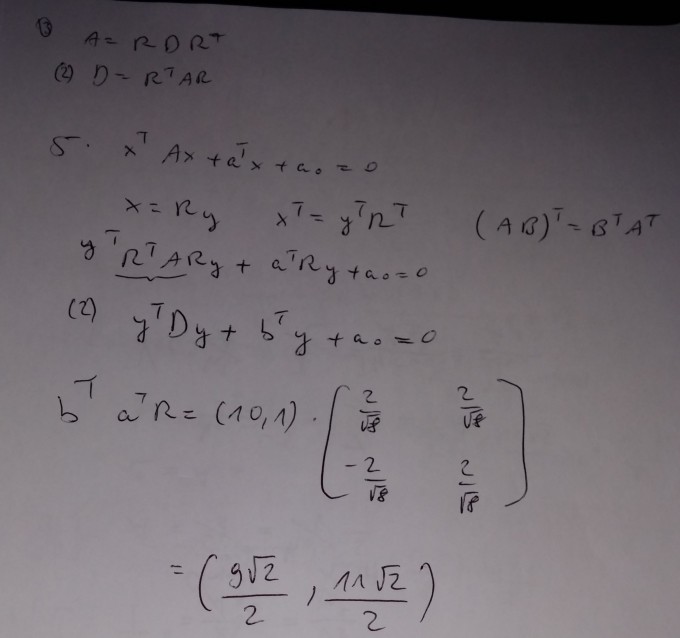 (1) A = R D Rᵀ
(2) D = Rᵀ A R
5. xᵀ Ax + aᵀx + a₀ = 0
x = Ry xᵀ = yᵀRᵀ (AB)ᵀ = BᵀAᵀ
yᵀRᵀARy + aᵀRy + a₀ = 0
(2) yᵀDy + bᵀy + a₀ = 0
bᵀ aᵀR = (10,1) · ( 2/√8 2/√8
-2/√8 2/√8 )
= ( 9√2/2 , 11√2/2 )